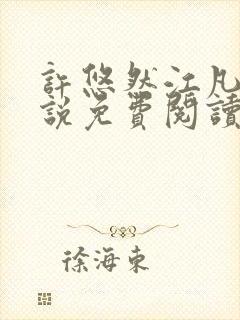 許悠然江凡
說免費閱讀
徐海東